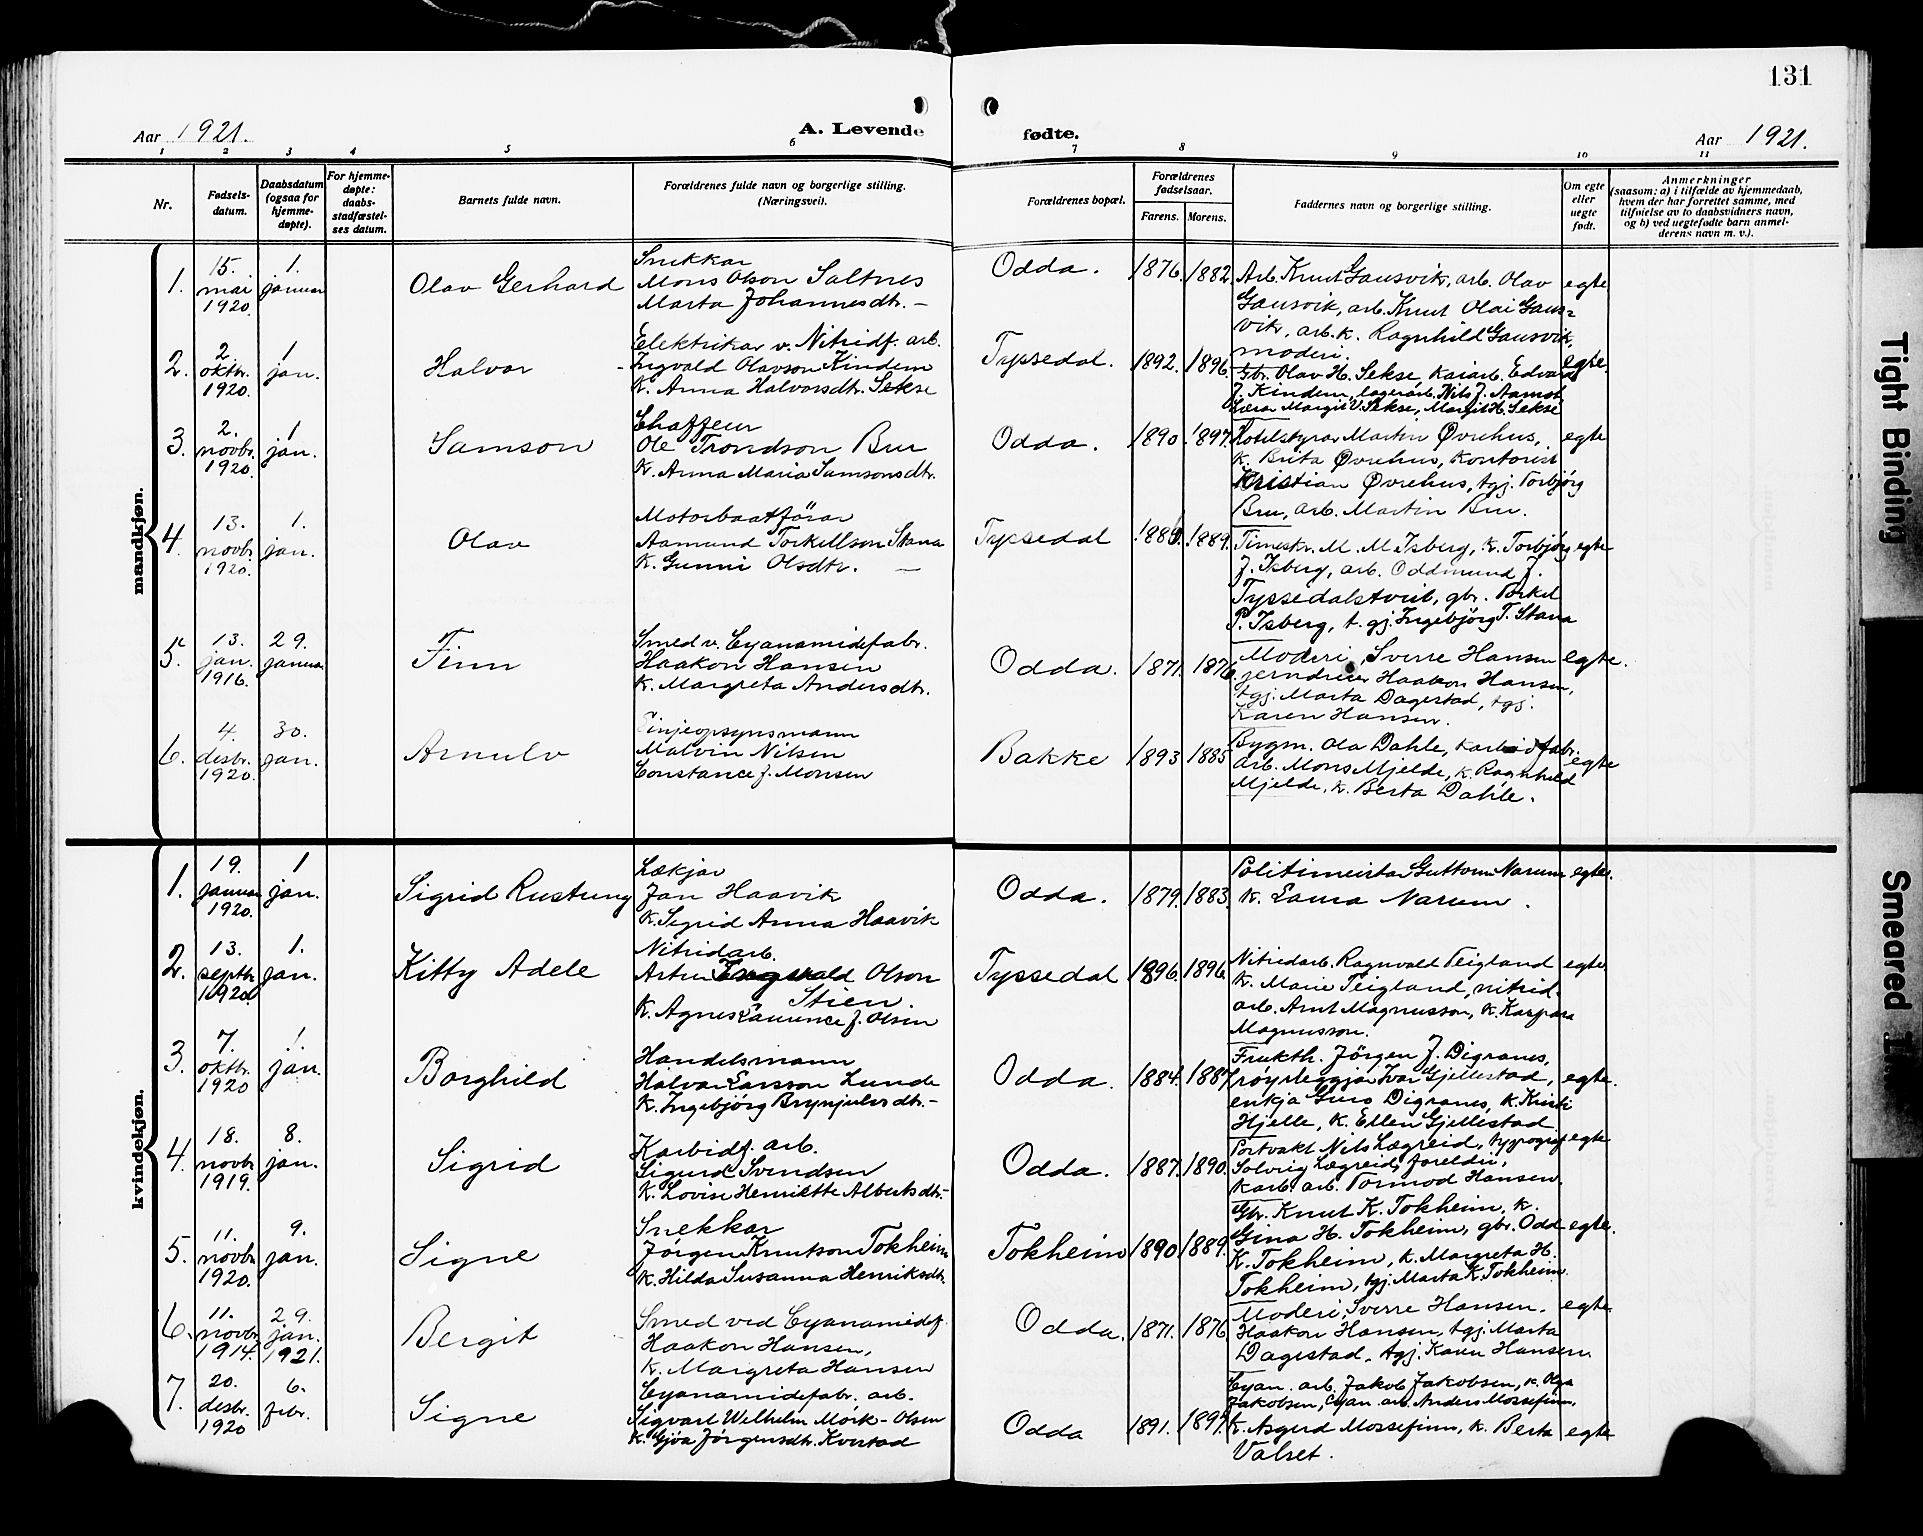 131
Aar 1921.
A. Levende fødte.
Aar 1921.
1 2 3 4 5 6 7 8 9 10 11
Nr.
Fødsels-
datum.
Daabsdatum
(ogsaa for
hjemme-
døpte).
For hjemme-
døpte:
daabs-
stadfæstel-
ses datum.
Barnets fulde navn.
Forældrenes fulde navn og borgerlige stilling.
(Næringsvei).
Forældrenes bopæl.
Forældrenes
fødselsaar.
Farens. Morens.
Faddernes navn og borgerlige stilling.
Om egte
eller
uegte
født.
Anmerkninger
(saasom: a) i tilfælde av hjemmedaab,
hvem der har forrettet samme, med
tilføielse av to daabsvidners navn,
og b) ved uegtefødte barn anmel-
derens navn m. v.).
mandkjøn.
1.
15.
mai
1920.
1.
januar
Olav Gerhard
Snikkar
Mons Olson Saltnes
Marta Johannesdtr. –
Odda.
1876. 1882.
Arb. Knut Gausvik, arb. Olav
Gausvik, arb. Knut Olai Gaus=
vik, arb. k. Ragnhild Gausvik,
moderi.
egte
2.
2.
oktbr.
1920.
1
jan.
Halvor
Elektrikar v. Nitridf. arb.
Ingvald Olavson Kindem
K. Anna Halvorsdtr. Sekse
Tyssedal.
1892. 1896.
Gbr. Olav H. Sekse, Kaiarb. Edvard
J. Kindem, lagerarb. Nils J. Aamot
Læra Margit V. Sekse, Margit H. Sekse
egte.
3.
2.
novbr.
1920.
1
jan.
Samson
Chaffeur
Ole Trondson Bru
K. Anna Maria Samsonsdtr.
Odda.
1890. 1897.
Hotelstyrar Martin Øvrehus,
K. Brita Øvrehus, Kontorist
Kristian Øvrehus, tgj. Torbjørg
Bru, arb. Martin Bru.
egte
4.
13.
novbr.
1920.
1.
jan.
Olav
Motorbaatførar
Aamund Torkellson Stana
K. Gunni Olsdtr. –
Tyssedal
1889.
Timeskr. M. M. Isberg, K. Torbjørg
J. Isberg, arb. Oddmund J.
Tyssedalstveit, gbr. Torkel
P. Isberg, t. gj. Ingebjørg T. Stana
egte
5.
13.
jan.
1916.
29.
januar
Finn
Smed v. Cyanamidefabr.
Haakon Hansen
K. Margreta Andersdtr.
Odda.
1871. 1876.
Moderi, Sverre Hansen
jerndreier Haakon Hansen,
tgj. Marta Dagestad, tgj.
Karen Hansen.
egte.
6.
4.
desbr.
1920.
30.
jan.
Arnulv
Linjeopsynsmann
Malvin Nilsen
Constance J. Monsen
Bakke
1893 1885
Bygm. Ola Dahle, Karbidfabr.
arb. Mons Mjelde, K. Ragnhild
Mjelde, K. Berta Dahle.
egte
kvindekjøn.
1.
19.
januar
1920.
1
jan.
Sigrid Rustung
Lækjar
Jan Haavik
K. Sigrid Anna Haavik
Odda.
1879. 1883.
Politimeistar Guttorm Narum
K. Laura Narum.
egte.
2.
13.
septbr.
1920.
1.
jan.
Kitty Adele
Nitridarb.
Artur Engvald Olson
Stien.
K. Agnes Laurence J. Olsen
Tyssedal
1896. 1896.
Nitridarb. Ragnvald Teigland
K. Marie Teigland, nitrid-
arb. Arnt Magnusson, K. Kaspara
Magnusson.
egte
3.
7.
oktbr.
1920
1.
jan.
Borghild
Handelsmann
Halvar Larsson Lunde
K. Ingebjörg Brynjulvsdtr. –
Odda.
1884. 1887.
Frukth. Jörgen J. Digranes,
røyrleggjar Ivar Gjellestad,
enkja Guro Digranes, K. Kristi
Hjelle, K. Ellen Gjellestad
egte.
4.
18.
novbr.
1919.
8.
jan.
Sigrid
Karbidf. arb.
Sigurd Svendsen
K. Lovise Henriette Albertsdtr. –
Odda.
1887. 1890.
Portvakt Nils Lægreid, typograf
Solveig Lægreid, foreldri,
Karb. arb. Tormod Hansen.
egte
5.
11.
novbr.
1920.
9.
jan.
Signe
Snekkar
Jørgen Knutson Tokheim
K. Hilda Susanna Henriksdtr.
Tokheim
1890. 1889.
Gbr. Knut K. Tokheim, K.
Gina H. Tokheim, gbr. Odd
K. Tokheim, K. Margreta H.
Tokheim, tgj. Marta K. Tokheim.
egte.
6.
11.
novbr.
1914.
29.
jan.
1921.
Bergit
Smed ved Cyanamidf.
Haakon Hansen,
K. Margreta Hansen
Odda.
1871. 1876
Moderi, Sverre Hansen.
Haakon Hansen, tgj. Marta
Dagestad, tgj. Karen Hansen.
egte
7.
20.
desbr.
1920
6.
febr.
Signe
Cyanamidefabr. arb.
Sigvart Wilhelm Mørk-Olsen
K. Gjöa Jörgensdtr. Kvestad
Odda
1891.
Cyan. arb. Jakob Jakobsen, K. Olga
Jakobsen, Cyan. arb. Anders Mossefinn,
K. Asgerd Mossefinn, K. Berta
Valset.
egte
Tight Binding
Smeared